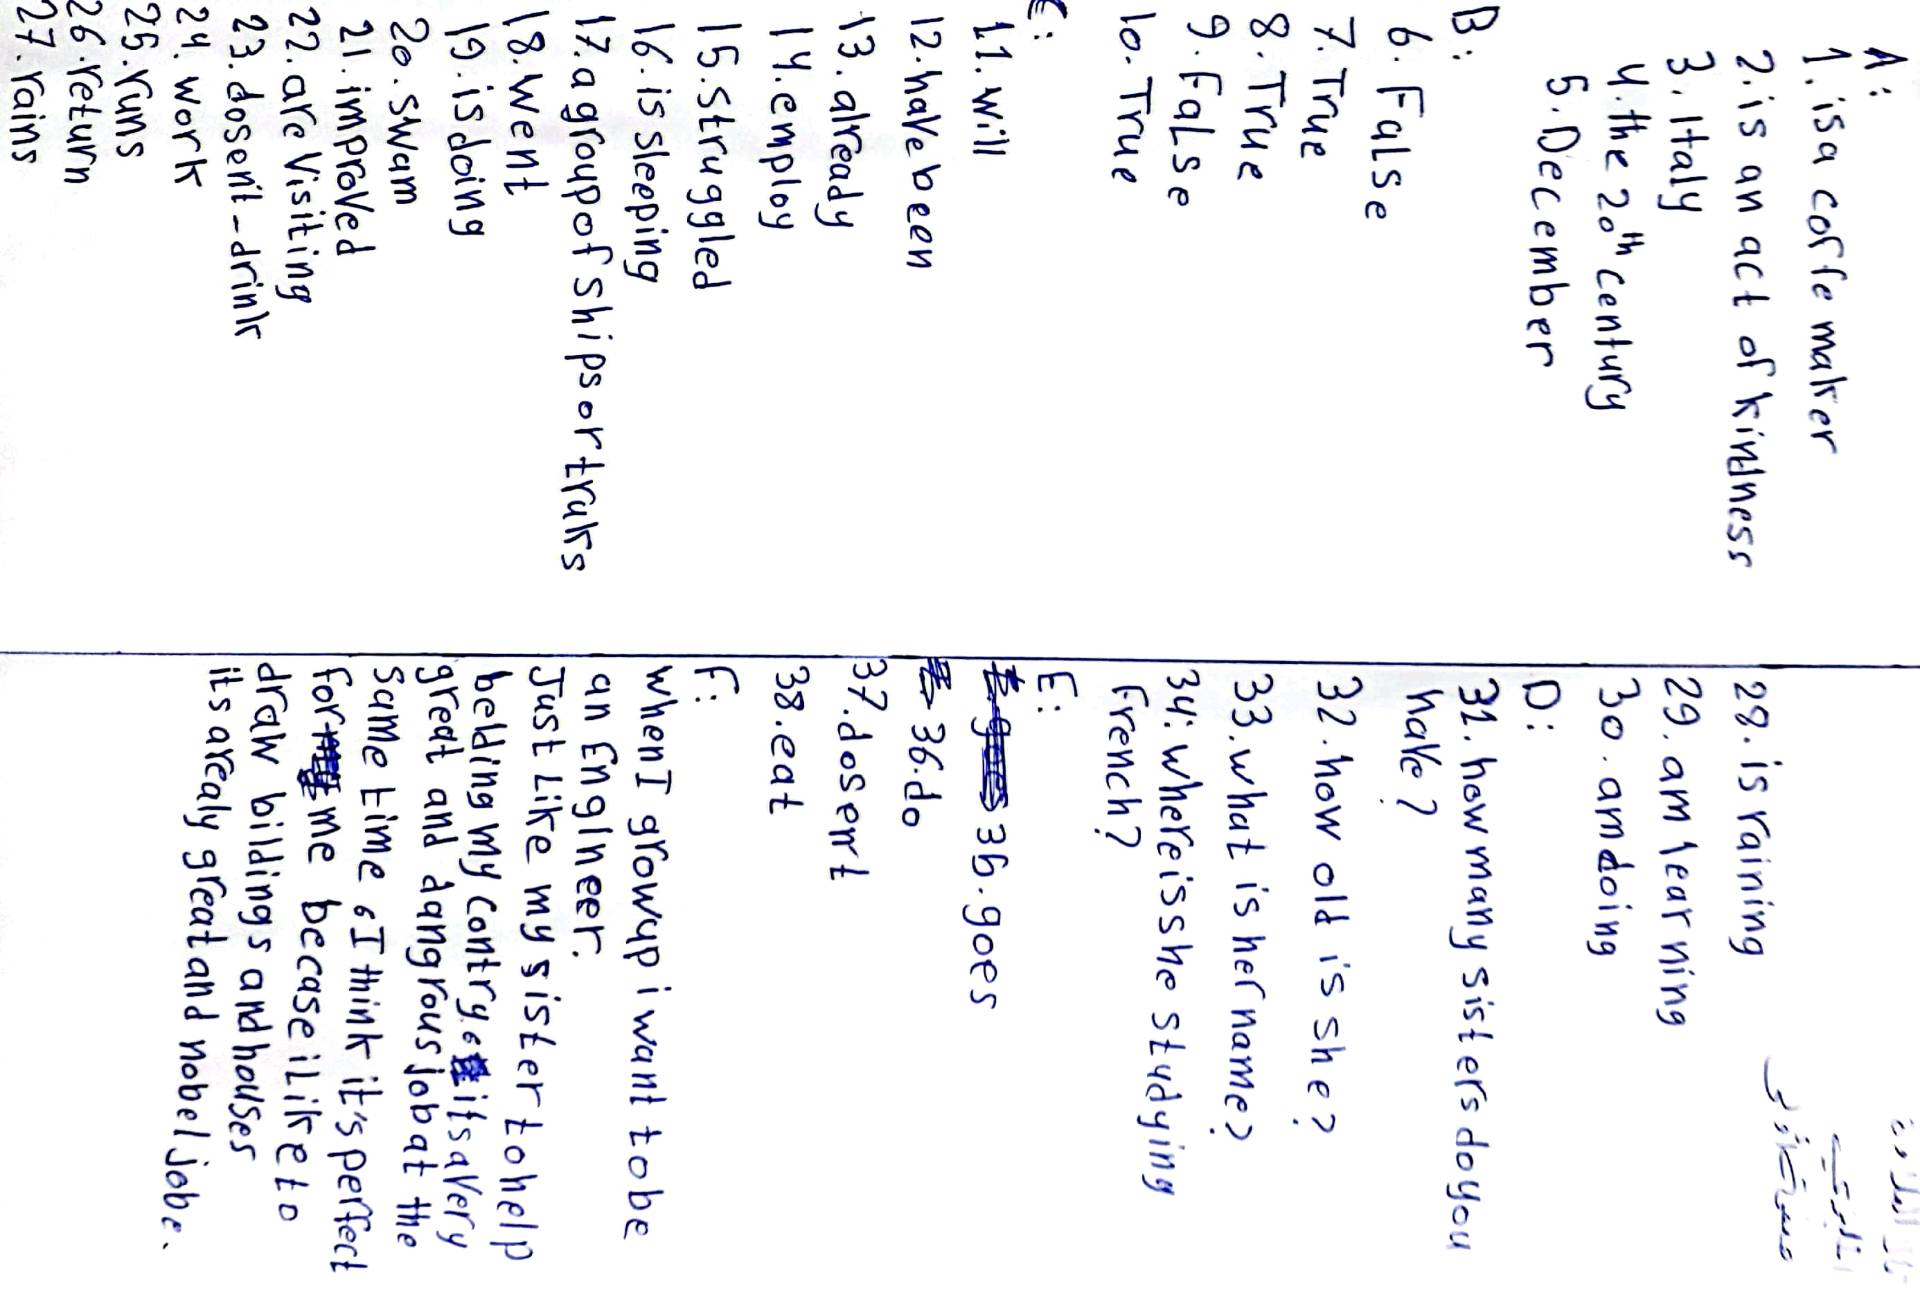 A:
1. is a corfe maker
2. is an act of kindness
3. Italy
4. the 20th century
5. December
B:
6. False
7. True
8. True
9. False
10. True
C:
11. will
12. have been
13. already
14. employ
15. struggled
16. is sleeping
17. a group of ships or truks
18. went
19. is doing
20. swam
21. improved
22. are visiting
23. dosent-drink
24. work
25. runs
26. return
27. rains
28. is raining
29. am learning
30. am doing
D:
31. how many sisters do you
have?
32. how old is she?
33. what is her name?
34. where is she studying
French?
E:
36. goes
36. do
37. dosent
38. eat
F:
when I grow up i want to be
an Engineer.
Just Like my sister to help
belding my contry, its a very
great and dangrous job at the
same time, I think it's perfect
for me because i like to
draw bildings and houses
its arealy great and nobel jobe.